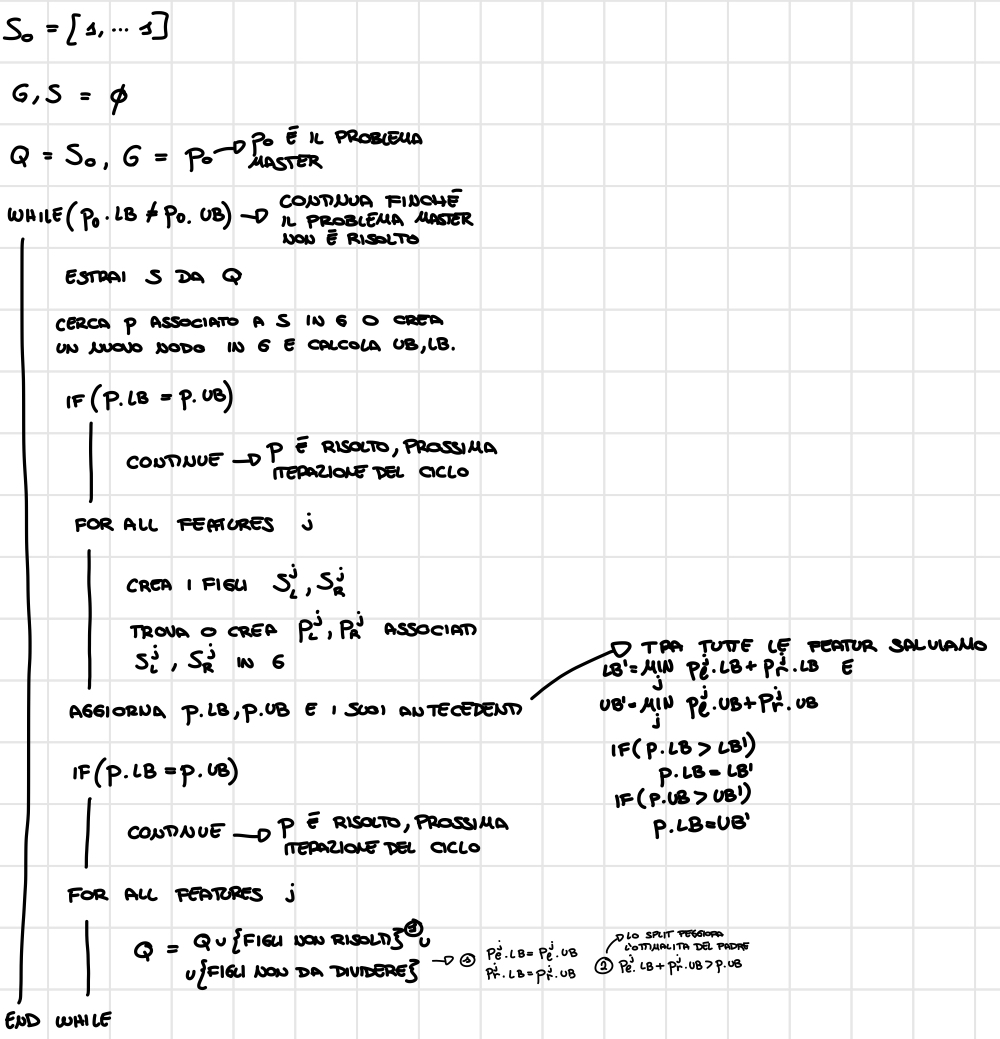 S₀ = [1, ... 1]
G,S = ϕ
Q = S₀, G = p₀ → p₀ È IL PROBLEMA
MASTER
WHILE(p₀.LB ≠ p₀.UB) → CONTINUA FINCHÈ
IL PROBLEMA MASTER
NON È RISOLTO
ESTRAI S DA Q
CERCA P ASSOCIATO A S IN G O CREA
UN NUOVO NODO IN G E CALCOLA UB,LB.
IF(P.LB = P.UB)
CONTINUE → P È RISOLTO, PROSSIMA
ITERAZIONE DEL CICLO
FOR ALL FEATURES j
CREA I FIGLI S_L^j, S_R^j
TROVA O CREA P_L^j, P_R^j ASSOCIATI
S_L^j, S_R^j IN G
AGGIORNA P.LB, P.UB E I SUOI ANTECEDENTI
→ TRA TUTTE LE FEATUR SALVIAMO
LB' = MIN_j P_l^j.LB + P_r^j.LB E
UB' = MIN_j P_l^j.UB + P_r^j.UB
IF(P.LB > LB')
P.LB = LB'
IF(P.UB > UB')
P.LB = UB'
IF(P.LB = P.UB)
CONTINUE → P È RISOLTO, PROSSIMA
ITERAZIONE DEL CICLO
FOR ALL FEATURES j
Q = Q ∪ {FIGLI NON RISOLTI} ∪
∪ {FIGLI NON DA DIVIDERE}
→ P_l^j.LB = P_l^j.UB
P_r^j.LB = P_r^j.UB
→ LO SPLIT PEGGIORA
L'OTTIMALITA DEL PADRE
② P_l^j.LB + P_r^j.UB > P.UB
END WHILE